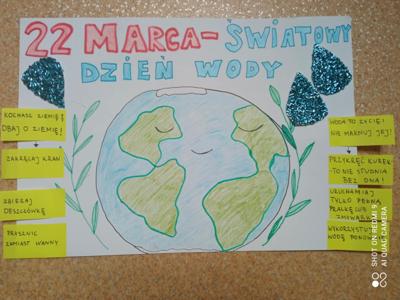 22 MARCA - ŚWIATOWY
DZIEŃ WODY
KOCHASZ ZIEMIĘ?
DBAJ O ZIEMIĘ!
ZAKRĘCAJ KRAN
ZBIERAJ
DESZCZÓWKĘ
PRYSZNIC
ZAMIAST WANNY
WODA TO ŻYCIE!
NIE MARNUJ JEJ!
PRZYKRĘĆ KUREK
-TO NIE STUDNIA
BEZ DNA!
URUCHAMIAJ
TYLKO PEŁNĄ
PRALKĘ LUB
ZMYWARKĘ
WYKORZYSTUJ
WODĘ
SHOT ON REDMI 9
AI QUAD CAMERA